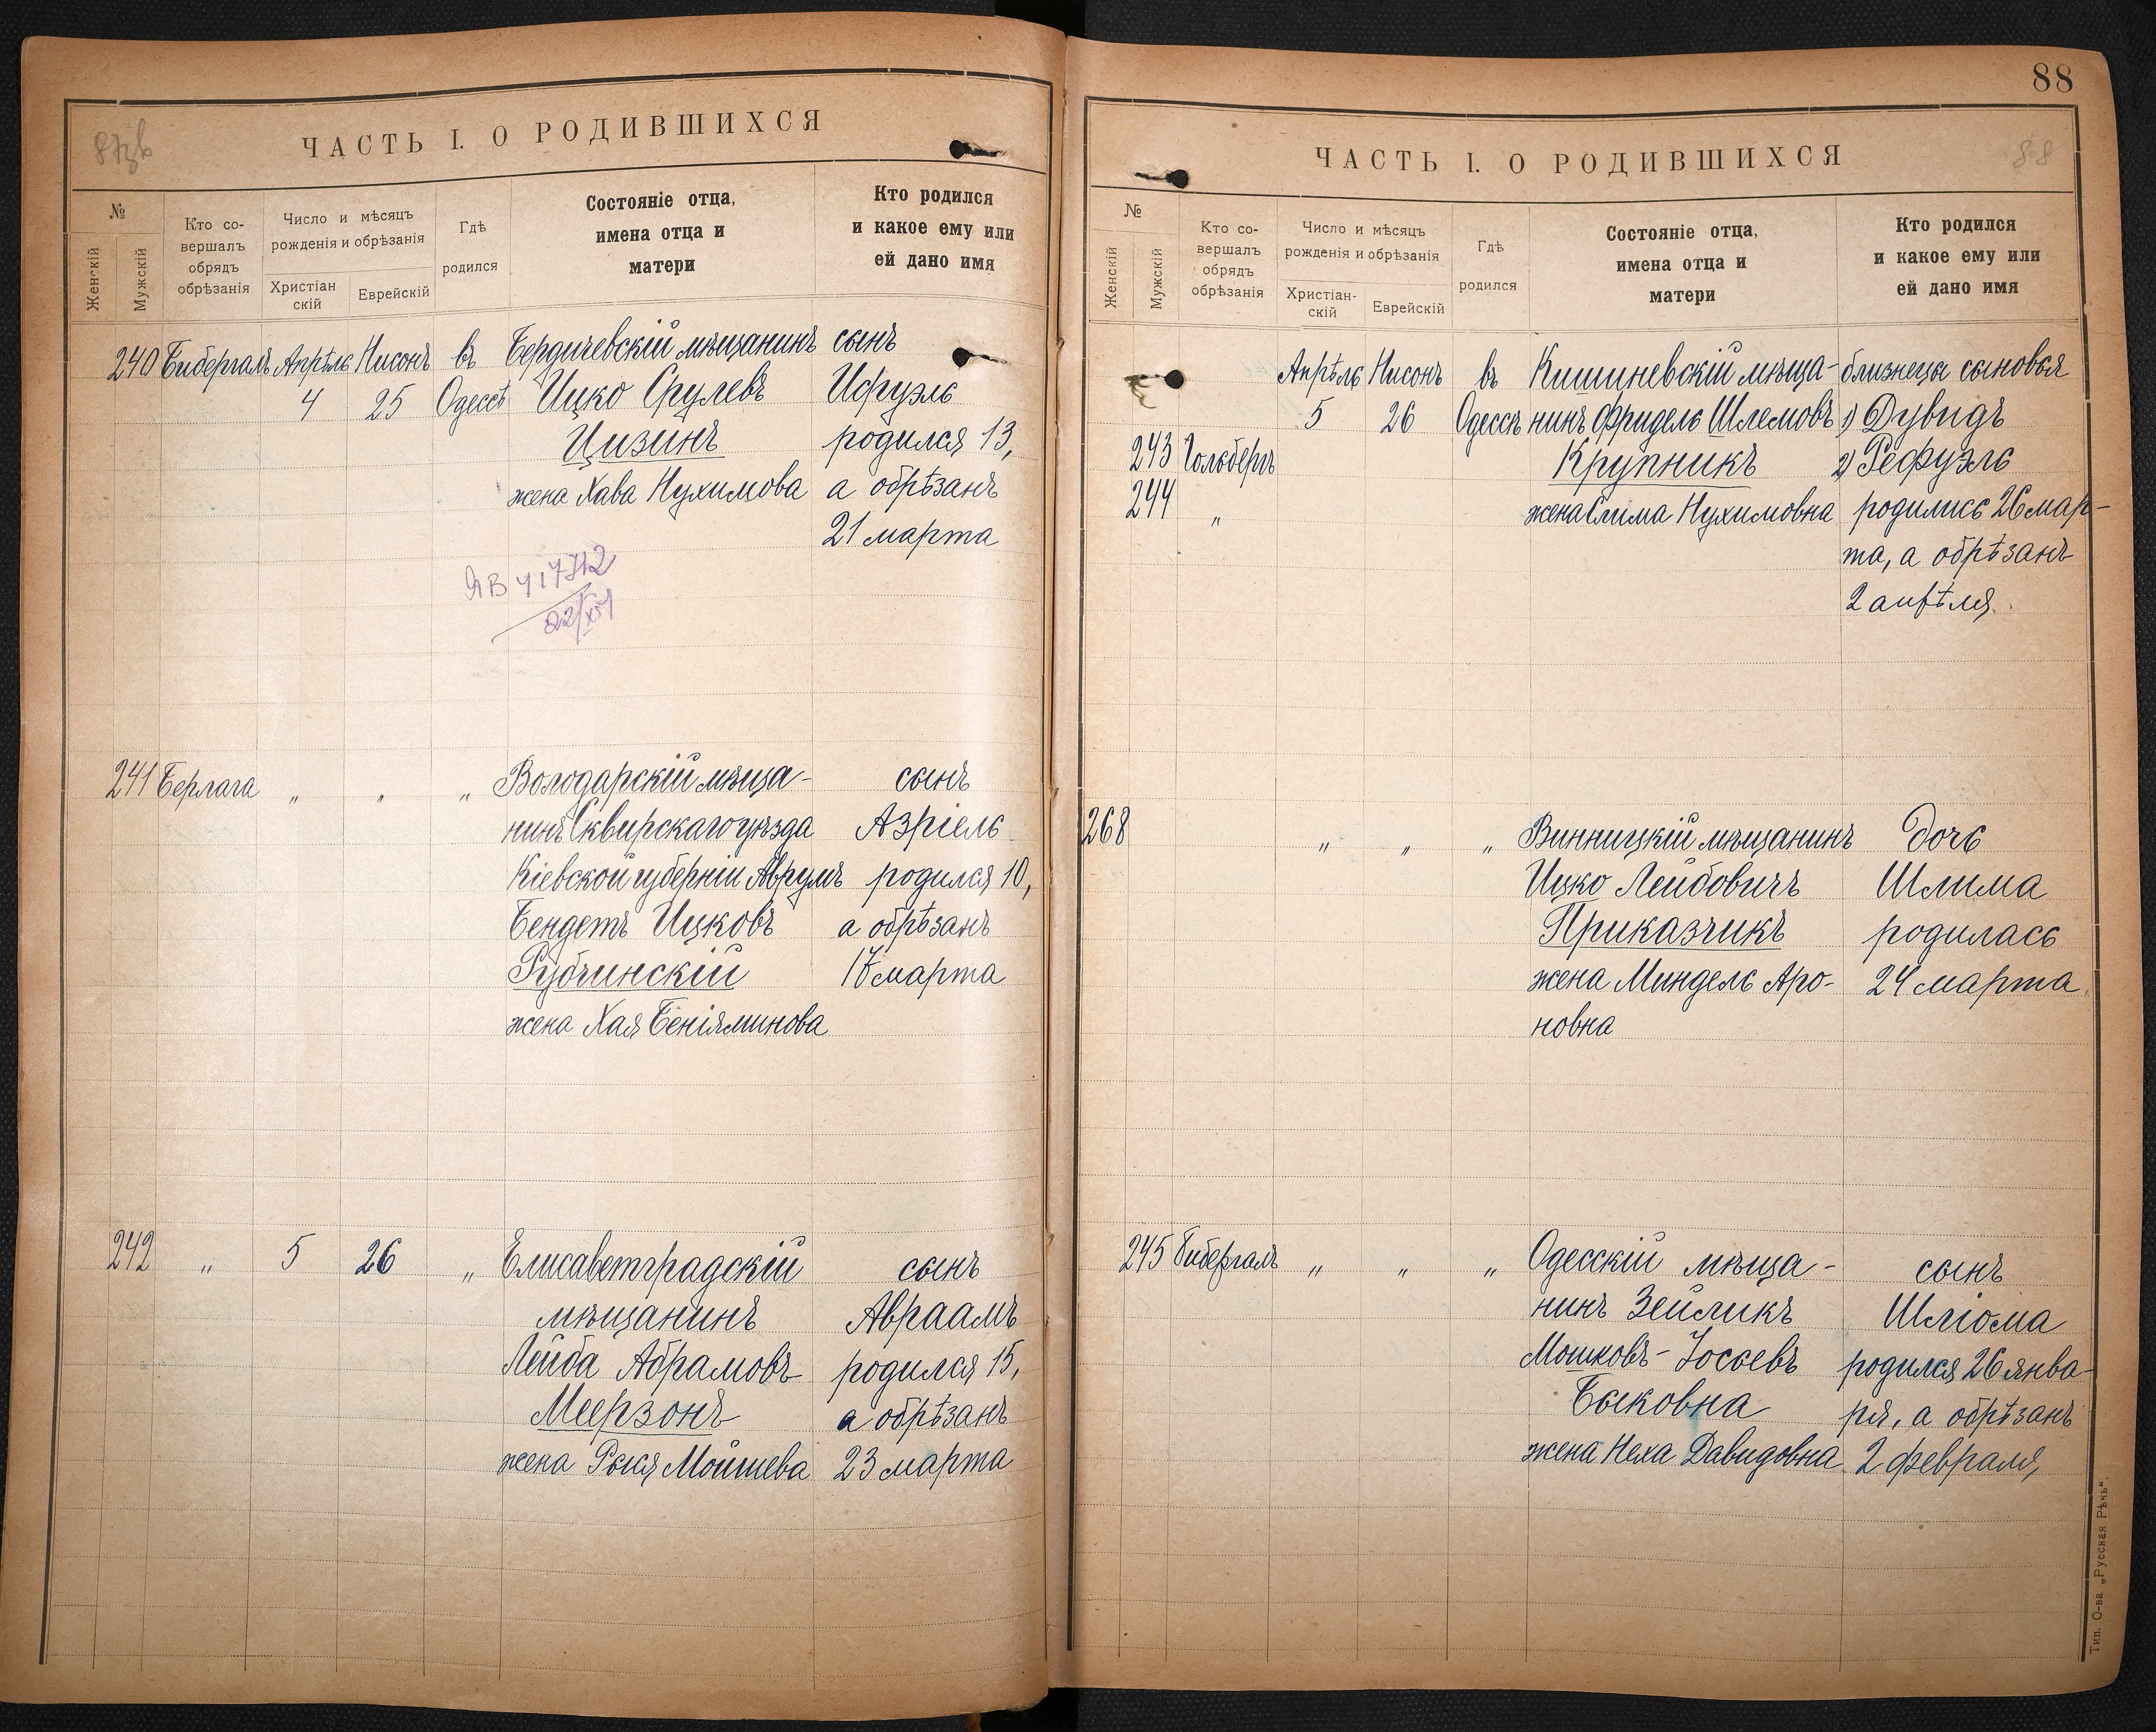 87зв
ЧАСТЬ I. О РОДИВШИХСЯ
№
Женскій
Мужскій
Кто со-
вершалъ
обрядъ
обрѣзанія
Число и мѣсяцъ
рожденія и обрѣзанія
Христіан
скій
Еврейскій
Гдѣ
родился
Состояніе отца,
имена отца и
матери
Кто родился
и какое ему или
ей дано имя
240 Бибергалъ Апрѣль Нисонъ въ Бердичевскій мѣщанинъ сынъ
4 25 Одессѣ Ицко Срулевъ Исруэль
Цизинъ родился 13,
жена Хава Нухимова а обрѣзанъ
21 марта
ЯВ 417312
22/XI
241 Берлага " " " Володарскій мѣща- сынъ
нинъ Сквирскаго уѣзда Азріель
Кіевской губерніи Аврумъ родился 10,
Бендетъ Ицковъ а обрѣзанъ
Рубчинскій 17 марта
жена Хая Бенiяминова
242 " 5 26 " Елисаветградскій сынъ
мѣщанинъ Авраамъ
Лейба Абрамовъ родился 15,
Меерзонъ а обрѣзанъ
жена Рыся Мойшева 23 марта
88
ЧАСТЬ I. О РОДИВШИХСЯ
88
№
Женскій
Мужскій
Кто со-
вершалъ
обрядъ
обрѣзанія
Число и мѣсяцъ
рожденія и обрѣзанія
Христіан-
скій
Еврейскій
Гдѣ
родился
Состояніе отца,
имена отца и
матери
Кто родился
и какое ему или
ей дано имя
Апрѣль Нисонъ въ Кишиневскій мѣща- близнецы сыновья
5 26 Одессѣ нинъ Фридель Шлемовъ 1) Дувидъ
243 Гольбергъ Крупникъ 2) Рефуэль
244 " жена Слима Нухимовна родились 26 мар-
та, а обрѣзанъ
2 апрѣля.
268 " " " Винницкій мѣщанинъ Дочь
Ицко Лейбовичъ Шлима
Приказчикъ родилась
жена Миндель Аро- 24 марта
новна
245 Бибергалъ " " " Одесскій мѣща- сынъ
нинъ Зейликъ Шліома
Мошковъ-Іосьевъ родился 26 янва-
Быковна ря, а обрѣзанъ
жена Неха Давидовна 2 февраля,
Тип. О-ва „Русская Рѣчь“.